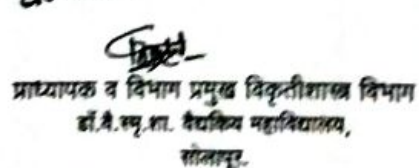 प्राध्यापक व विभाग प्रमुख विकृतीशास्त्र विभाग
डॉ.वै.स्मृ.शा. वैद्यकिय महाविद्यालय,
सोलापूर.